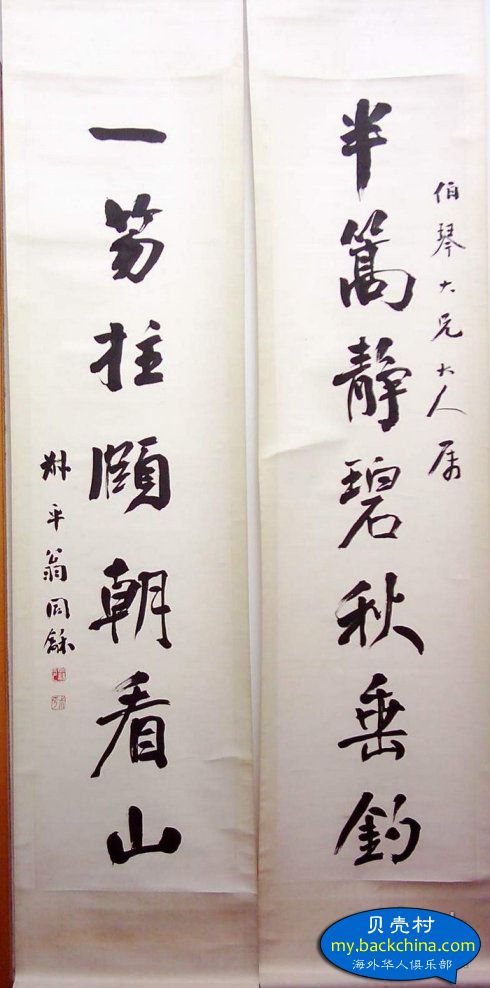 伯琴大兄大人属
半篙靜碧秋垂釣
一笏拄頤朝看山
叔平翁同龢
贝壳村
my.backchina.com
海外华人俱乐部